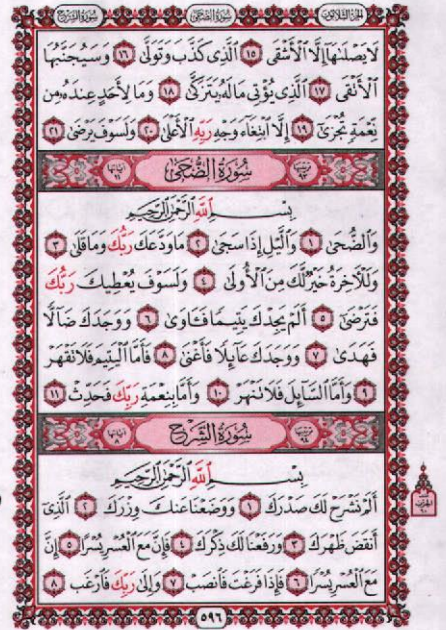 الجزء الثلاثون سورة الضحى سورة الشرح
لَا يَصْلَىٰهَآ إِلَّا ٱلْأَشْقَى ١٥ ٱلَّذِى كَذَّبَ وَتَوَلَّىٰ ١٦ وَسَيُجَنَّبُهَا
ٱلْأَتْقَى ١٧ ٱلَّذِى يُؤْتِى مَالَهُۥ يَتَزَكَّىٰ ١٨ وَمَا لِأَحَدٍ عِندَهُۥ مِن
نِّعْمَةٍ تُجْزَىٰٓ ١٩ إِلَّا ٱبْتِغَآءَ وَجْهِ رَبِّهِ ٱلْأَعْلَىٰ ٢٠ وَلَسَوْفَ يَرْضَىٰ ٢١
سُورَةُ الضُّحَىٰ
بِسْمِ ٱللَّهِ ٱلرَّحْمَٰنِ ٱلرَّحِيمِ
وَٱلضُّحَىٰ ١ وَٱلَّيْلِ إِذَا سَجَىٰ ٢ مَا وَدَّعَكَ رَبُّكَ وَمَا قَلَىٰ ٣
وَلَلْءَاخِرَةُ خَيْرٌ لَّكَ مِنَ ٱلْأُولَىٰ ٤ وَلَسَوْفَ يُعْطِيكَ رَبُّكَ
فَتَرْضَىٰٓ ٥ أَلَمْ يَجِدْكَ يَتِيمًا فَـَٔاوَىٰ ٦ وَوَجَدَكَ ضَآلًّا
فَهَدَىٰ ٧ وَوَجَدَكَ عَآئِلًا فَأَغْنَىٰ ٨ فَأَمَّا ٱلْيَتِيمَ فَلَا تَقْهَرْ
٩ وَأَمَّا ٱلسَّآئِلَ فَلَا تَنْهَرْ ١٠ وَأَمَّا بِنِعْمَةِ رَبِّكَ فَحَدِّثْ ١١
سُورَةُ الشَّرْحِ
بِسْمِ ٱللَّهِ ٱلرَّحْمَٰنِ ٱلرَّحِيمِ
أَلَمْ نَشْرَحْ لَكَ صَدْرَكَ ١ وَوَضَعْنَا عَنكَ وِزْرَكَ ٢ ٱلَّذِىٓ
أَنقَضَ ظَهْرَكَ ٣ وَرَفَعْنَا لَكَ ذِكْرَكَ ٤ فَإِنَّ مَعَ ٱلْعُسْرِ يُسْرًا ٥ إِنَّ
مَعَ ٱلْعُسْرِ يُسْرًا ٦ فَإِذَا فَرَغْتَ فَٱنصَبْ ٧ وَإِلَىٰ رَبِّكَ فَٱرْغَب ٨
٥٩٦